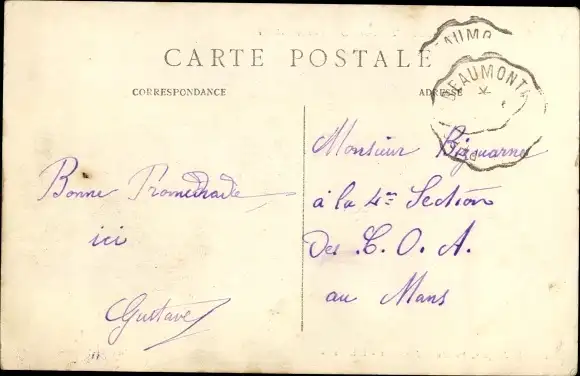 CARTE POSTALE
CORRESPONDANCE
ADRESSE
BEAUMONT
Bonne Promenade
ici
Gustave
Monsieur Bignarne
à la 4me Section
Des C. O. A.
au Mans